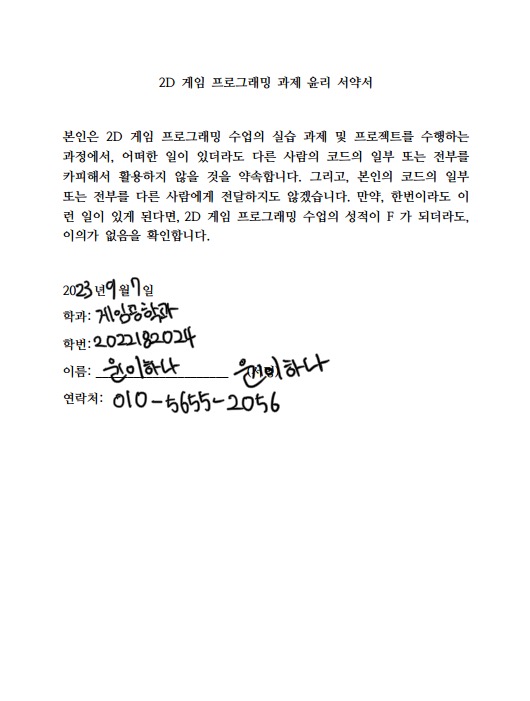 2D 게임 프로그래밍 과제 윤리 서약서
본인은 2D 게임 프로그래밍 수업의 실습 과제 및 프로젝트를 수행하는
과정에서, 어떠한 일이 있더라도 다른 사람의 코드의 일부 또는 전부를
카피해서 활용하지 않을 것을 약속합니다. 그리고, 본인의 코드의 일부
또는 전부를 다른 사람에게 전달하지도 않겠습니다. 만약, 한번이라도 이
런 일이 있게 된다면, 2D 게임 프로그래밍 수업의 성적이 F 가 되더라도,
이의가 없음을 확인합니다.
2023년 9월 7일
학과: 게임공학과
학번: 2022182024
이름: 윤이하나 (서명) 윤이하나
연락처: 010-5655-2056